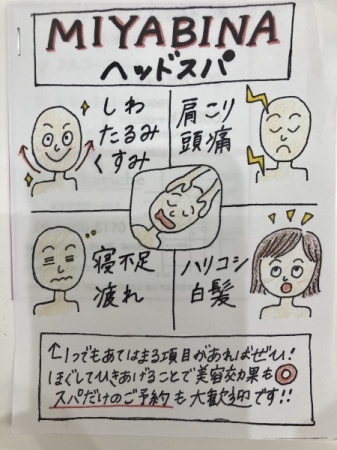 MIYABINA
ヘッドスパ
しわ
たるみ
くすみ
肩こり
頭痛
寝不足
疲れ
ハリコシ
白髪
↑1つでもあてはまる項目があればぜひ!
ほぐしてひきあげることで美容効果も◎
スパだけのご予約も大歓迎です!!